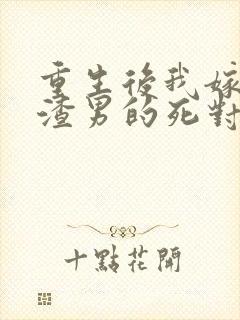 重生後我嫁
渣男的死對
十點花開